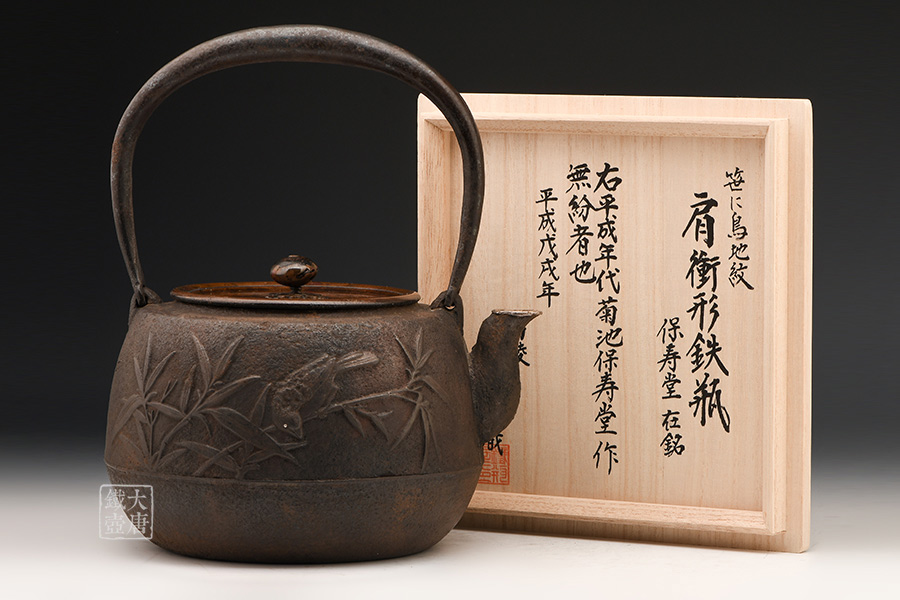 笹に鳥地紋
肩衝形鉄瓶
保寿堂 在銘
右平成年代菊池保寿堂 作
無紛者也
平成戊戌年
大唐
鐵壺